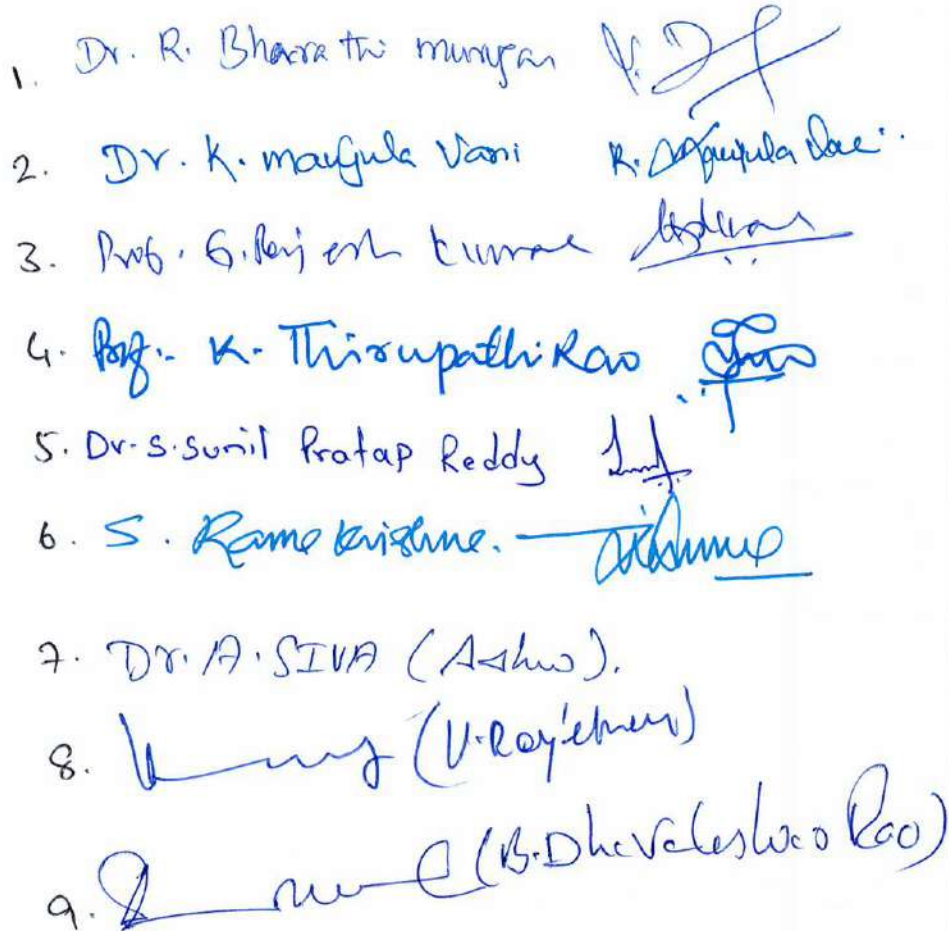 1. Dr. R. Bharathi murugan
2. Dr. K. manjula Vani K. Manjula Vani
3. Prof. G. Rajesh kumar
4. Prof. K. Thirupathi Rao
5. Dr. S. Sunil Pratap Reddy
6. S. Rama Krishna.
7. Dr. A. SIVA (Ashw).
8. (V. Rajehm)
9. (B. Dhavaleshwao Rao)